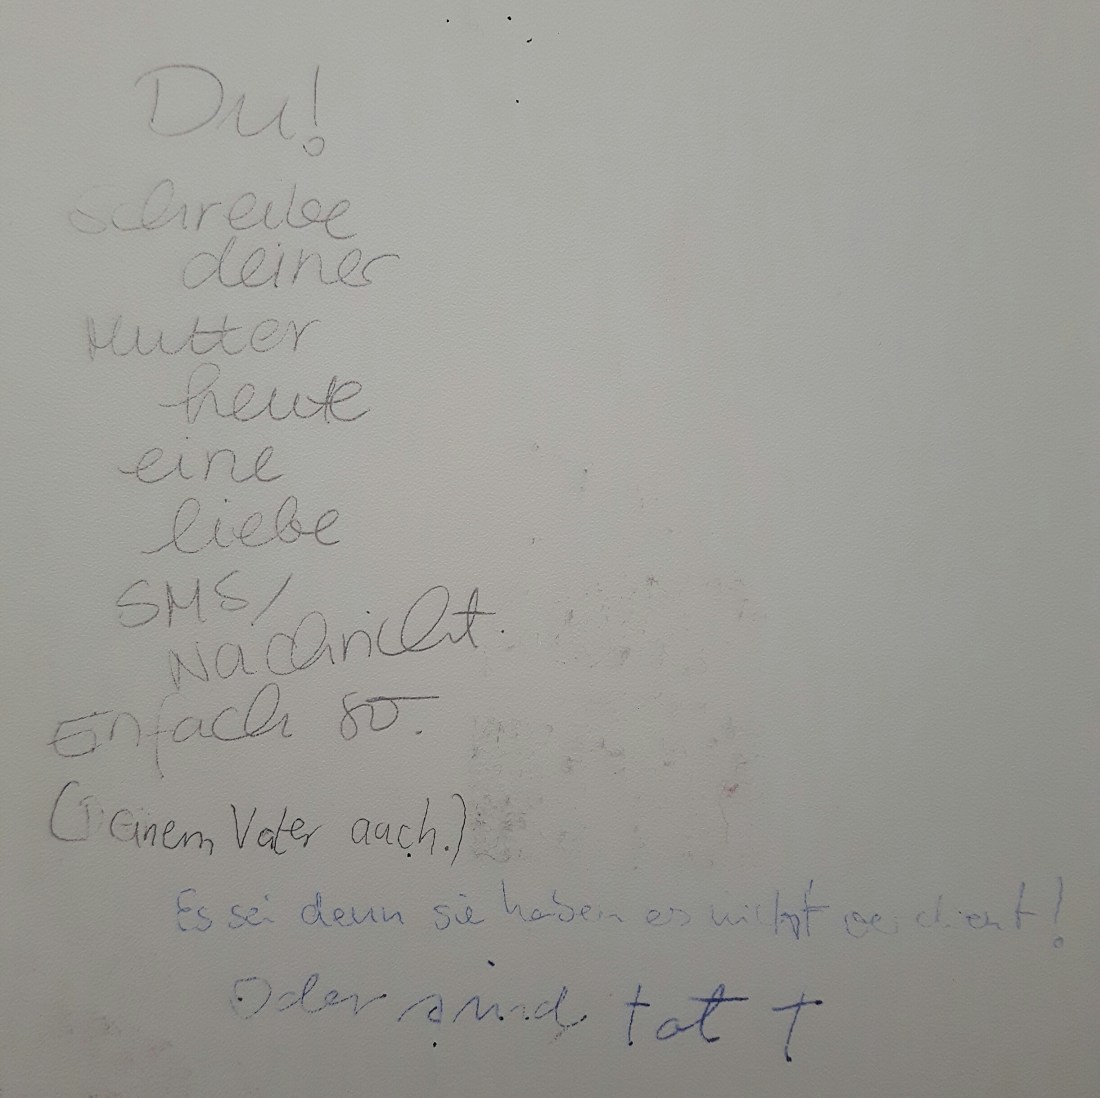 Du!
Schreibe
deiner
Mutter
heute
eine
liebe
SMS/
Nachricht.
Einfach so.
(Deinem Vater auch.)
Es sei denn sie haben es nicht verdient!
Oder sind tot †